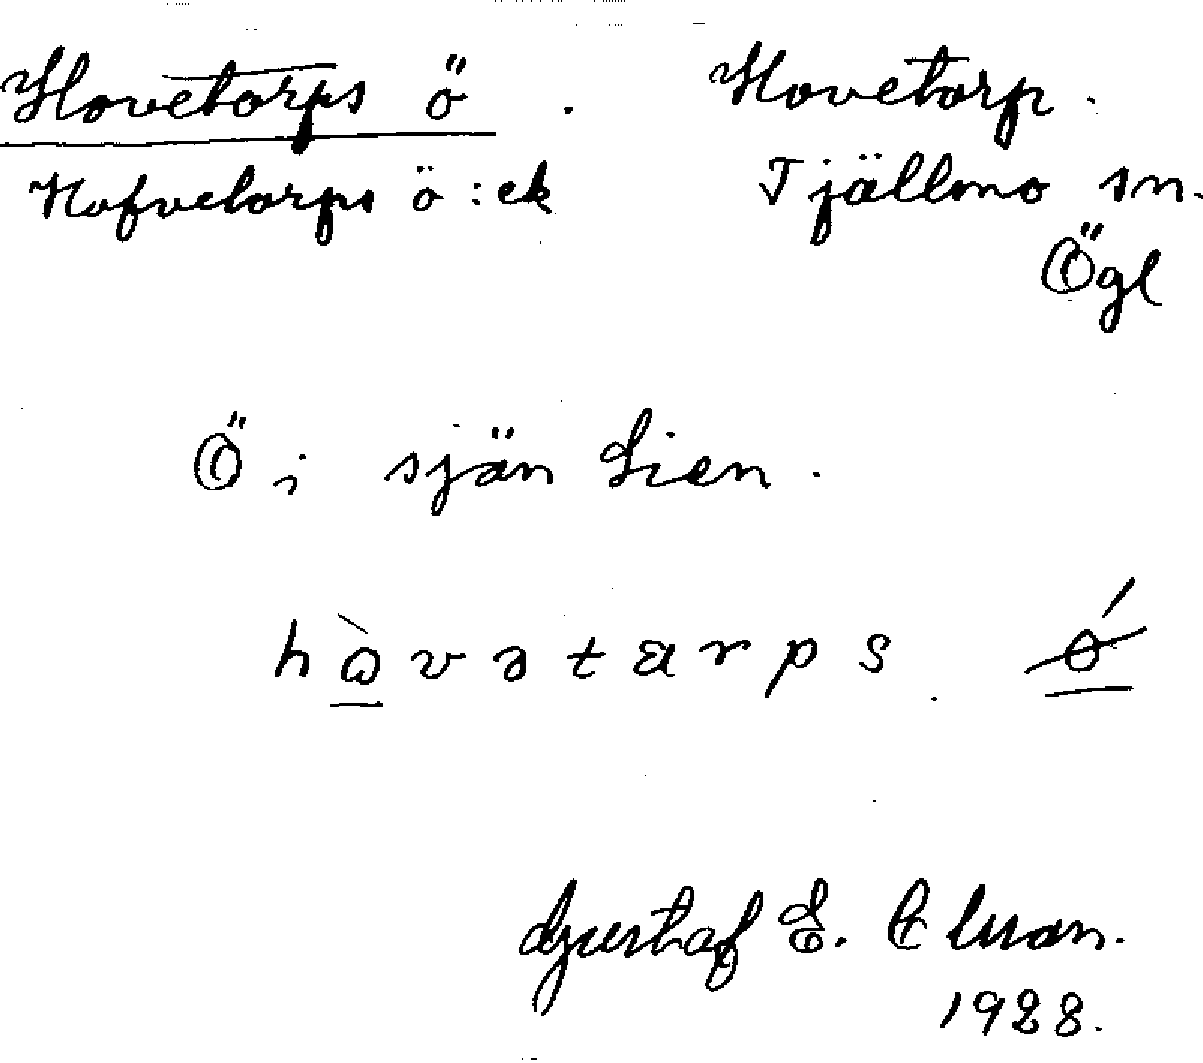 Hovetorps ö . Hovetorp.
Hofvetorps ö :ek Tjällmo sn.
Ögl
Ö i sjön Lien.
hὼvətarps ǿ
Gustaf E.
1928.